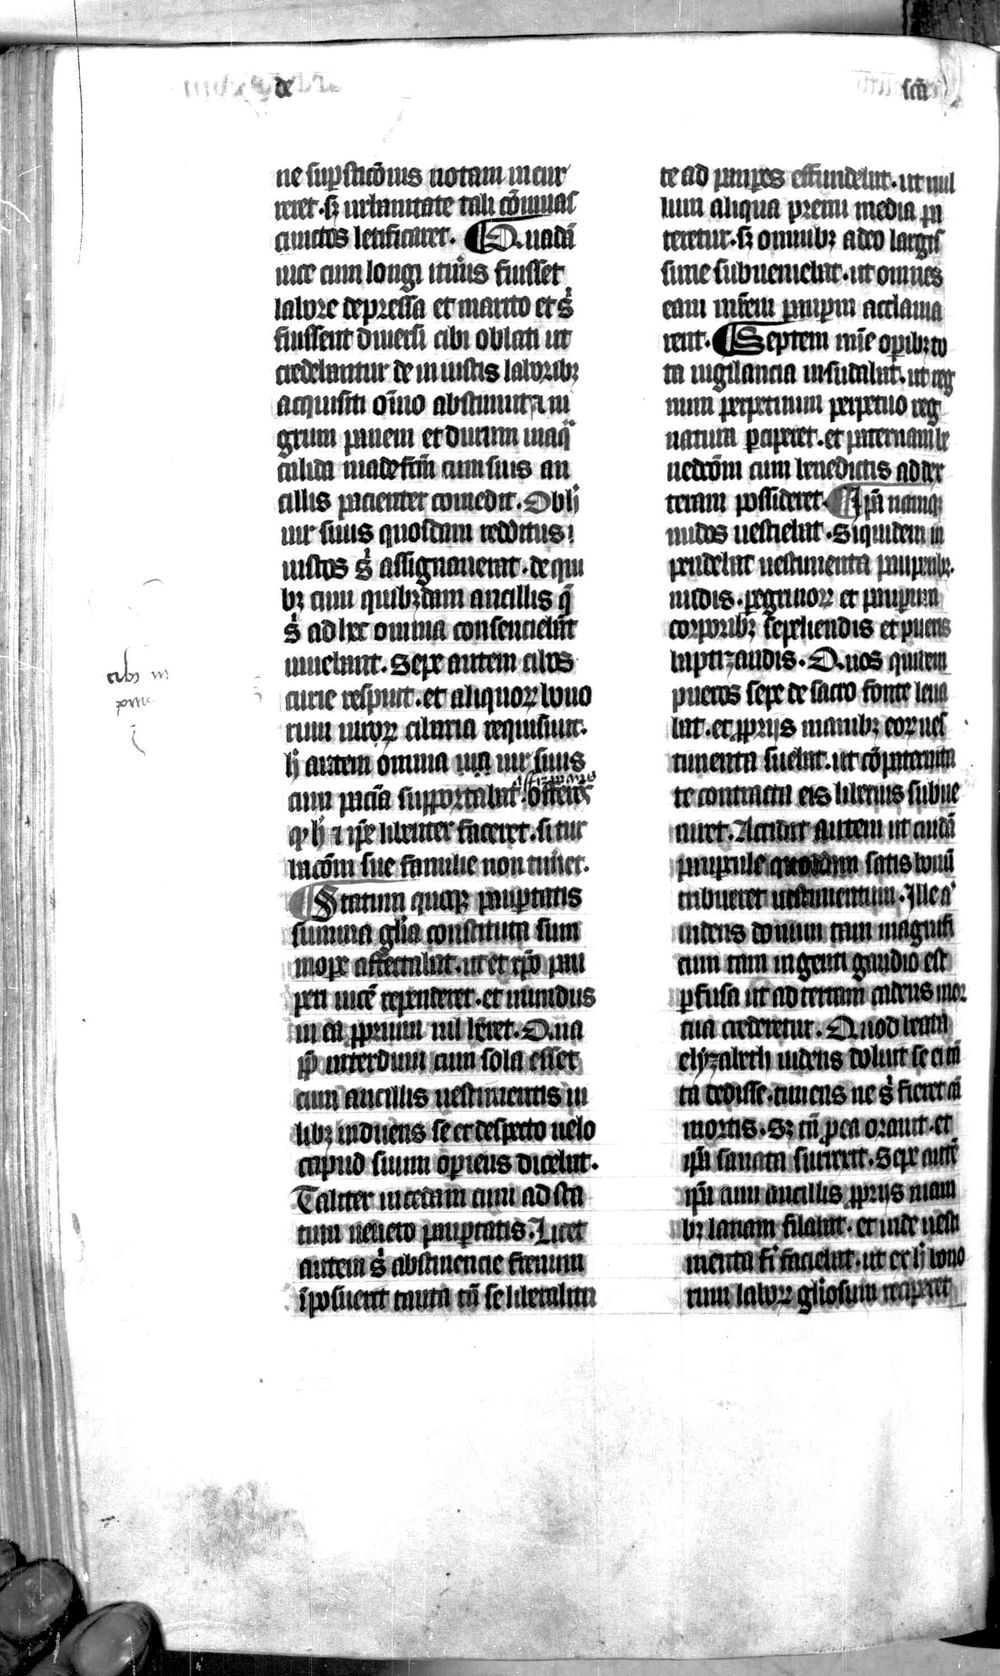 de
scā
ne suꝑsticōnis notam incur
reret · sꝫ urbanitate tali cōuiuas
cunctos letificaret. Quadā
uice cum longi itin̄is fuisset
labore depressa et marito et sͥ
fuissent diuersi cibi oblati ut
credebantur de in iustis laboribꝫ
acquisiti oīno abstinuit ⁊ ni
grum panem et durum in aq̄
calida madefcm̄ cum suis an
cillis pacienter comedit. Ob hͦ
uir suus quosdam redditus i
iustos sͥ assignauerat · de qui
bꝫ cum quibꝫdam ancillis q̄
sͥ ad hec omnia consenciebāt
uiuebant. Sepe autem cibos
curie respuit · et aliquoꝝ bono
rum uiroꝝ cibaria requisiuit.
hͦ autem omnia uir suus
cum paciā supportabat · asserens
qͥ hͦ ⁊ ip̄e libenter faceret · si tur
bacōm sue familie non timēt.
Statum quoqꝫ pauꝑtatis
summa gl̄ia constituta sum
mope affectabat · ut et xp̄o pau
peri uicē rependeret · et mundus
in ea ꝓprium nil hēret. Vn̄
ip̄a interdum cum sola esset
cum ancillis uestimentis ui
libꝫ induens se et despecto uelo
capud suum opiens dicebat.
Taliter incedam cum ad sta
tum uenero pauꝑtatis. Licet
autem sͥ abstinencie frenum
īposuerit tanta tn̄ se liberalita
te ad pauꝑes effundebat · ut nul
lum aliqua premi media pa
teretur · sꝫ omnibꝫ adeo largis
sime subueniebat · ut omnes
eam mr̄em pauꝑum acclama
rent. Septem mīe oꝑibꝫ to
ta uigilancia insudabat · ut reg
num perpetuum perpetuo reg
natura ꝑciperet · et paternam be
nedcōm cum benedictis ad dex
teram possideret. Ip̄a namqꝫ
nudos uestiebat · Siquidem in
pendebat uestimenta pauperibꝫ.
nudis · ꝑegrinoꝝ et pauꝑum
corporibꝫ sepeliendis et pueris
baptizandis. Quos quidem
pueros sepe de sacro fonte leua
bat · et ꝓprijs manibꝫ eoꝝ ues
timenta suebat · ut cōpaternita
te contracta eis liberius subue
niret. Accidit autem ut cuidā
pauꝑcule quoddam satis bonū
tribueret uestimentum. Ille aͥ
uidens donum tam magnifi
cum tam ingenti gaudio est
ꝑfusa ut ad terram cadens mor
tua crederetur. Quod beata
elyzabeth uidens doluit se ei tā
ta dedisse · timens ne sͥ fieret cā
mortis. Sꝫ tn̄ ꝓ ea orauit · et
ip̄a sanata surrexit. Sepe autē
ip̄a cum ancillis ꝓprijs mani
bꝫ lanam filabat · et inde uesti
menta fiͥ faciebat · ut ex hͦ bono
rum laboꝝ gl̄iosum reciperet